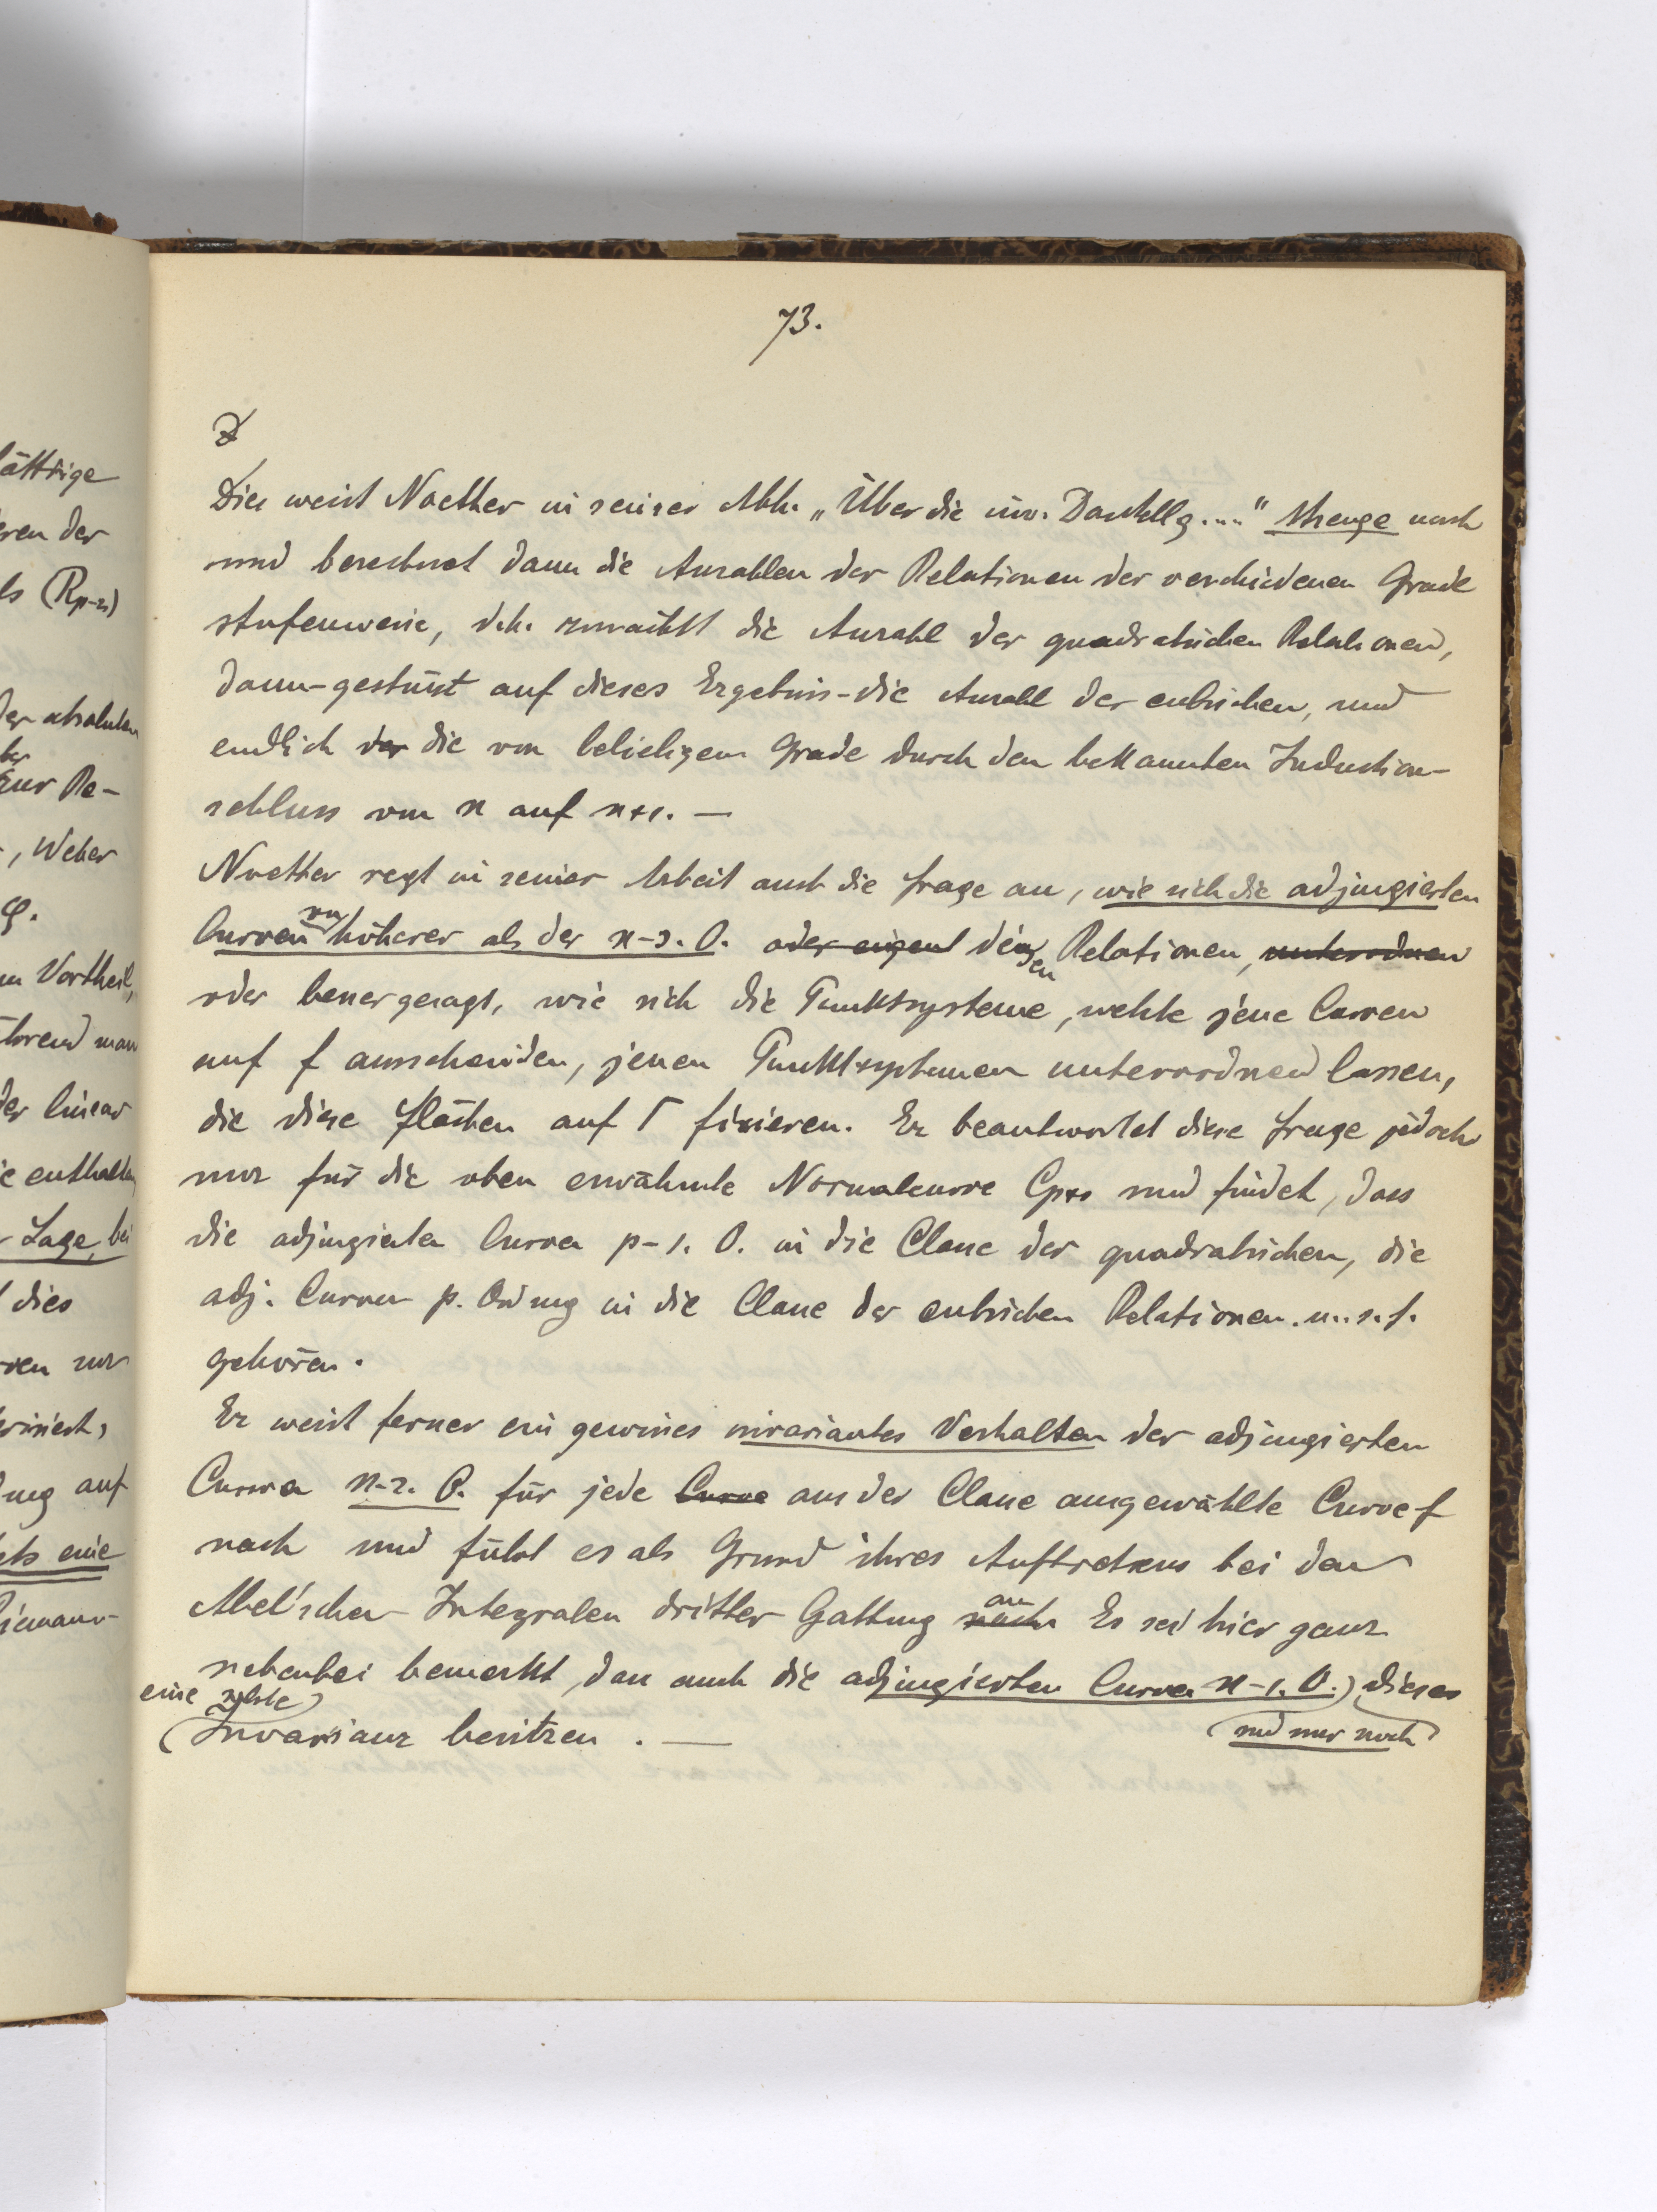 73.
Dies weist Noether in seiner Abh. „Über die inv. Darstellg...." strenge nach
und berechnet dann die Anzahlen der Relationen der verschiedenen Grade
stufenweise, d.h. zunächst die Anzahl der quadratischen Relationen,
dann-gestützt auf dieses Ergebnis-die Anzahl der cubischen, und
endlich der die von beliebigem Grade durch den bekannten Induction-
schluss von n auf n+1. —
Noether regt in seiner Arbeit auch die Frage an, wie sich die adjungierten
Curven von höherer als der n-3. O. oder eigentl denjen Relationen, unterordnen
oder besser gesagt, wie sich die Punktsysteme, welche jene Curven
auf f ausschneiden, jenen Punktsystemen unterordnen lassen,
die diese Flächen auf Γ fixieren. Er beantwortet diese Frage jedoch
nur für die oben erwähnte Normalcurve Cp+1 und findet, dass
die adjungierten Curven p-1. O. in die Classe der quadratischen, die
adj. Curven p. Ordnung in die Classe der cubischen Relationen. u. s. f.
gehören.
Er weist ferner ein gewisses invariantes Verhalten der adjungierten
Curven n-2. O. für jede Curve aus der Classe ausgewählte Curve f
nach und führt es als Grund ihres Auftretens bei den
Abel'schen Integralen dritter Gattung nach an Es sei hier ganz
nebenbei bemerkt, dass auch die adjungierten Curven n-1. O.) dieses
eine solche (und nur noch)
Invarianz besitzen. —
lättrige
eren der
ls (Rp-1)
der absoluten
zur Re-
, Weber
φ.
m Vortheil,
ährend man
der linear
ie enthalten
r Lage, bei
dies
auf
ets eine
Riemann-